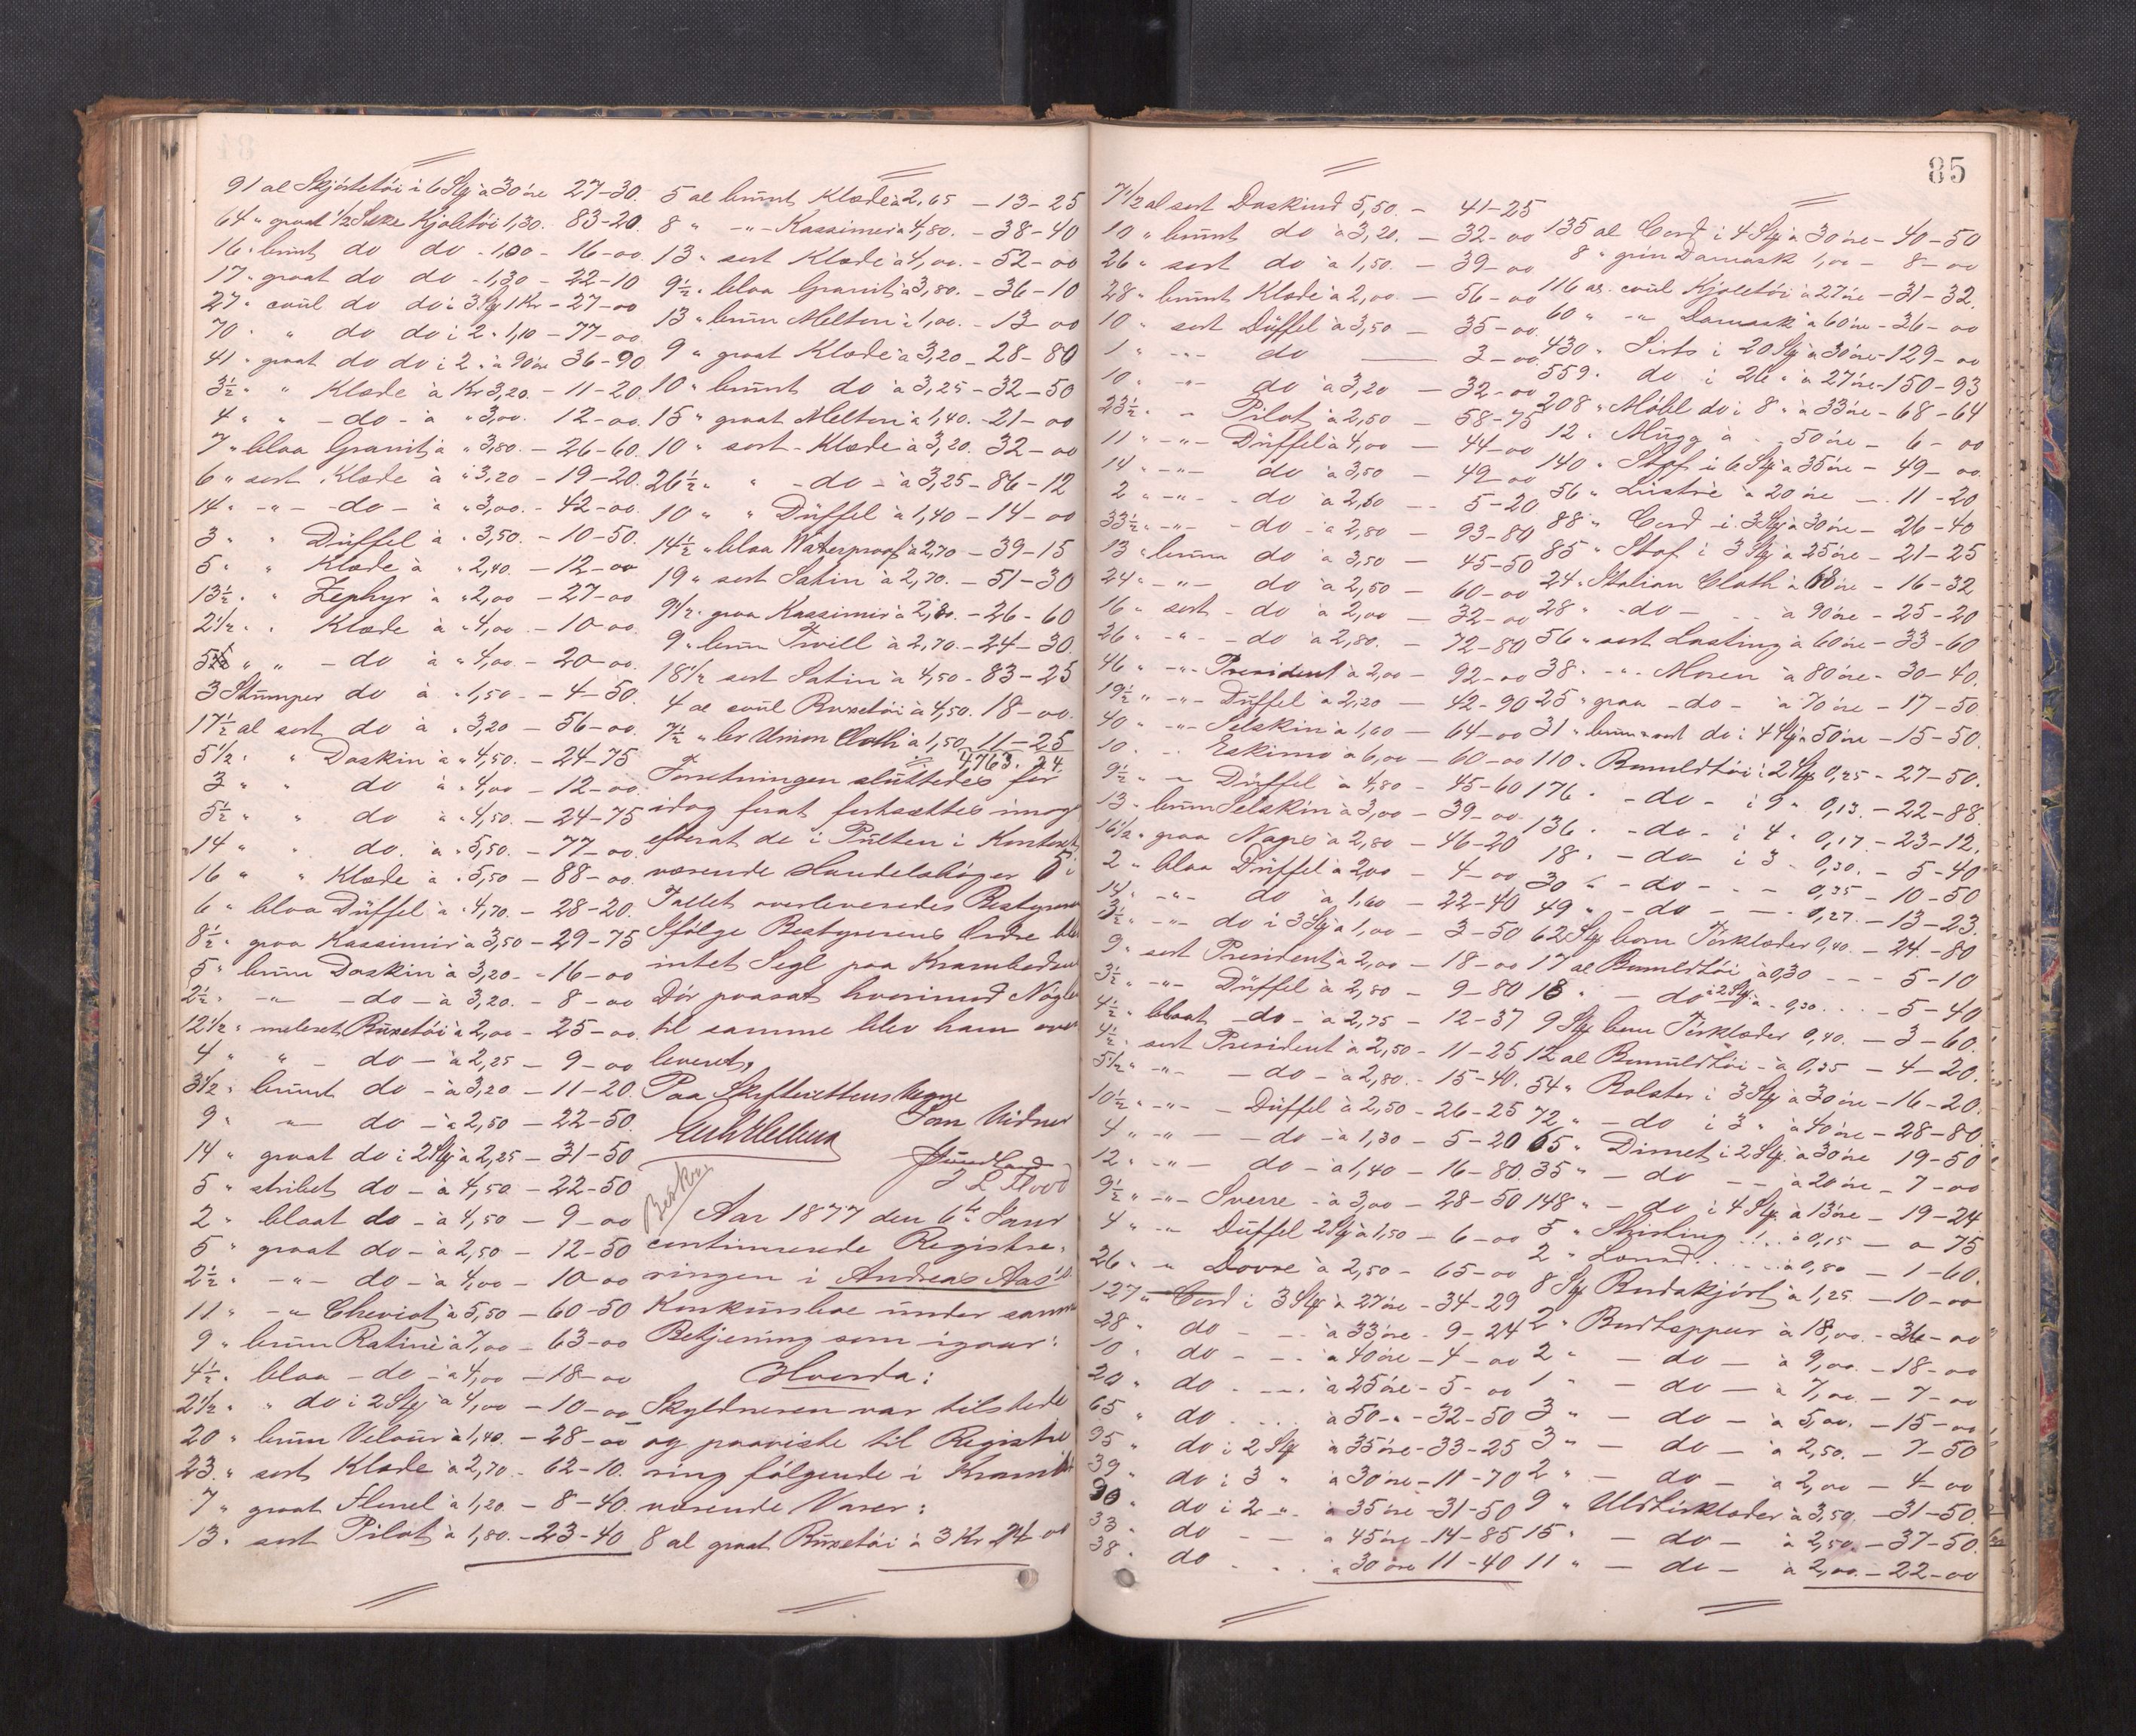 91 al Skjörtetöi i 6 Stk à 30 öre 27-30.
64 " graat 1/2 Silke Kjoletöi 1,30. 83-20.
16 " brunt do do - 1,00 - 16-00
17 " graat do do - 1,30 - 22-10
27 " coul do do i 3 Stk 1 Kr - 27-00
70 " " do do i 2 " 1,10 - 77-00
41 " graat do do i 2 " à 90 öre 36-90
3 1/2 " " Klæde à Kr 3,20 - 11-20
4 " " - do - à " 3,00. 12-00.
7 " blaa Granit à " 3,80. - 26-60
6 " sort Klæde à " 3,20 - 19-20
14 " -"- do - à " 3,00. - 42-00.
3 " " Düffel à " 3,50. - 10-50.
5 " " Klæde à " 2,40. - 12-00
13 1/2 " " Zephyr à " 2,00 - 27-00
2 1/2 " " Klæde à " 4,00 - 10-00
5 " " - do à " 4,00. - 20-00.
3 Stumper do à " 1,50 - 4-50.
17 1/2 al sort do à " 3,20 - 56-00.
5 1/2 " " Doskin à " 4,50. - 24-75
3 " " do à " 4,00 - 12-00.
5 1/2 " " do à " 4,50. - 24-75
14 " " do. à " 5,50. - 77-00.
16 " " Klæde à " 5,50 - 88-00.
6 " blaa Düffel à " 4,70. - 28-20.
8 1/2 " graa Kassimir à 3,50 - 29-75
5 " brun Doskin à 3,20 - 16-00
2 1/2 " -"- - do - à 3,20. - 8-00
12 1/2 " meleret Buxetöi à 2,00 - 25-00.
4 " " - do - à 2,25 - 9-00
3 1/2 " brunt do - à 3,20 - 11-20.
9 " -"- do - à 2,50 - 22-50.
14 " graat do i 2 Stk à 2,25 - 31-50
5 " stribet do - à 4,50 - 22-50
2 " blaat do - à 4,50 - 9-00
5 " graat do - à 2,50 - 12-50
2 1/2 " -"- do - à 4,00 - 10-00
11 " -"- Cheviot à 5,50 - 60-50
9 " brun Ratinè à 7,00 - 63-00
4 1/2 " blaa - do - à 4,00 - 18-00
2 1/2 " " do i 2 Stk à 4,00 - 10-00
20 " brun Velour à 1,40. - 28-00
23 " sort Klæde à 2,70 - 62-10.
7 " graat Flenel à 1,20 - 8-40.
13 " sort Pilot à 1,80. - 23-40
5 al brunt Klæde à 2,65 - 13-25
8 " -"- Kassimir à 4,80. - 38-40
13 " sort Klæde à 4,00. - 52-00
9 1/2 " blaa Granit à 3,80. - 36-10
13 " brun Melton à 1,00. - 13-00
9 " graat Klæde à 3,20 - 28-80
10 " brunt do à 3,25 - 32-50
15 " graat Melton à 1,40. - 21-00
10 " sort - Klæde à 3,20. 32-00
26 1/2 " " - do - à 3,25 - 86-12
10 " " Düffel à 1,40 - 14-00
14 1/2 " blaa Waterproof à 2,70 - 39-15
19 " sort Satin à 2,70. - 51-30
9 1/2 " graa Kassimir à 2,80. - 26-60
9 " brun Twill à 2,70. - 24-30.
18 1/2 sort Satin à 4,50 - 83-25
4 al coul Buxetöi à 4,50. 18-00.
7 1/2 " br Union Cloth à 1,50 11-25
4763. 24
Forretningen sluttedes for
idag forat fortsættes imorg
efterat de i Pulten i Kontoret
værende Handelsböger 5 i
Tallet overleveredes Bestyreren
Ifölge Bestyrerens Ordre blev
intet Segl paa Krambodens
Dör paasat hvorimod Nöglen
til samme blev ham over
leveret.
Paa Skifterettens Vegne
Som Vidner
Aar 1877 den 6te Januar
continuerede Registre-
ringen i Andreas Aas's
Konkursboe under samme
Betjening som igaar:
Hvorda:
Skyldneren var tilstede
og paaviste til Registre
ring fölgende i Kramb
værende Varer:
8 al graat Buxetöi à 3 Kr 24-00
85
7 1/2 al sort Doskind 5,50. - 41-25
10 " brunt do à 3,20. - 32-00
26 " sort do à 1,50. - 39-00
28 " brunt Klæde à 2,00 - 56-00
10 " sort Düffel à 3,50 - 35-00.
1 " -"- do - 3-00
10 " -"- do à 3,20 - 32-00
23 1/2 " " Pilot à 2,50 - 58-75
11 " -"- Düffel à 4,00 - 44-00
14 " -"- do à 3,50 - 49-00
2 " -"- - do à 2,60 - 5-20
33 1/2 " -"- - do - à 2,80 - 93-80
13 " brun do à 3,50 - 45-50
24 " -"- do à 2,50 - 60-00
16 " sort - do à 2,00 - 32-00
26 " -"- - do à 2,80. - 72-80
46 " -"- President à 2,00 - 92-00
19 1/2 " -"- Düffel à 2,20 - 42-90
40 " -"- Selskin à 1,60 - 64-00
10 " " Eskimo à 6,00 - 60-00
9 1/2 " " Düffel à 4,80 - 45-60
13 " brun Selskin à 3,00 - 39-00
16 1/2 " graa Napré à 2,80 - 46-20
2 " blaa Düffel à 2,00 - 4-00
14 " -"- do à 1,60 - 22-40
3 1/2 " -"- do i 3 Stk à 1,00 - 3-50
9 " sort President à 2,00 - 18-00
3 1/2 " -"- Düffel à 2,80 - 9-80
4 1/2 " blaat - do - à 2,75 - 12-37
4 1/2 " sort President à 2,50 - 11-25
5 1/2 " -"- - do - à 2,80. - 15-40.
10 1/2 " -"- - Düffel à 2,50 - 26-25
4 " -"- - do - à 1,30 - 5-20
12 " -"- do - à 1,40 - 16-80.
9 1/2 " -"- Sverre - à 3,00 - 28-50
4 " -"- Düffel 2 Stk à 1,50 - 6-00
26 " " Dovre à 2,50 - 65-00
127 " Cord i 3 Stk à 27 öre - 34-29
28 " do - - à 33 öre - 9-24
10 " do - - à 40 öre - 4-00
20 " do - - à 25 öre - 5-00
65 " do - - à 50 " - 32-50
95 " do i 2 Stk à 35 öre - 33-25
39 " do i 3 " à 30 öre - 11-70
90 " do i 2 " à 35 öre - 31-50
33 " do - à 45 öre - 14-85
38 " do - à 30 öre 11-40
135 al Cord i 4 Stk à 30 öre - 40-50
8 " grön Damask 1,00 - 8-00
116 al. coul Kjoletöi à 27 öre - 31-32.
60 " -"- Damask à 60 öre - 36-00
430 " Sirts i 20 Stk à 30 öre - 129-00
559 " do i 26 " à 27 öre - 150-93
208 " Möbl do i 8 " à 33 öre - 68-64
12 " Mügg à - 50 öre - 6-00
140 " Stof i 6 Stk à 35 öre - 49-00
56 " Lüstré à 20 öre - 11-20
88 " Cord i 3 Stk à 30 öre - 26-40
85 " Stof i 3 Stk à 25 öre - 21-25
24 " Italian Cloth à 68 öre - 16-32
28 " - do - à 90 öre - 25-20
56 " sort Lasting à 60 öre - 33-60
38 " -"- Moren à 80 öre - 30-40.
25 " graa - do - à 70 öre - 17-50
31 " brun & sort do i 4 Stk à 50 öre - 15-50.
110 " Bomuldtöi i 2 Stk 0,25 - 27-50.
176 " - do - i 9 " 0,13. - 22-88.
136 " - do - i 4 " 0,17. - 23-12.
18 " - do - i 3 - 0,30. - 5-40
30 " - do - - 0,35 - 10-50
49 " - do - - 0,27. - 13-23.
62 Stk bom Törklæder 0,40. - 24-80
17 al Bomuldtöi à 0,30 - - 5-10
18 " - do à 2 Stk à 0,30 - 5-40
9 Stk bom Törklæder 0,40. - 3-60.
12 al Bomuldtöi - à 0,35 - 4-20.
54 " Bolster i 3 Stk à 30 öre - 16-20.
72 " - do i 3 " à 40 öre - 28-80
65 " Dimet i 2 Stk. à 30 öre 19-50
35 " - do - - à 20 öre - 7-00
148 " - do i 4 Stk à 13 öre - 19-24
5 " Skirting . . . à 0,15 - 0 75
2 " Lerred . . . à 0,80 - 1-60.
8 Stk Bordskjört à 1,25 - 10-00
2 " Bordtepper à 18,00. - 36-00
2 " - do - à 9,00. - 18-00
1 " - do - à 7,00. - 7-00
3 " - do - à 5,00. - 15-00
3 " - do - à 2,50. - 7-50
2 " - do - à 2,00 - 4-00
9 " Uldtörklæder à 3,50. - 31-50.
15 " - do - à 2,50. - 37-50.
11 " - do - à 2,00. - 22-00